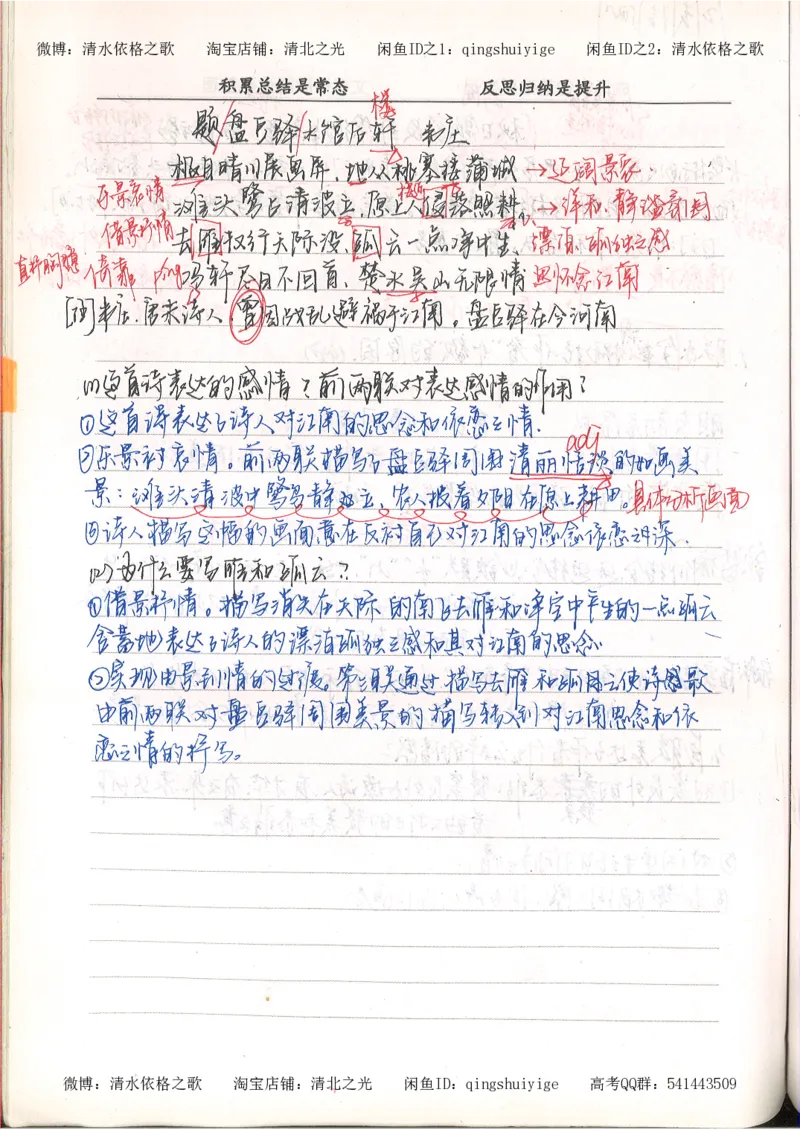 微博：清水依格之歌 淘宝店铺：清北之光 闲鱼ID之1：qingshuiyige 闲鱼ID之2：清水依格之歌
积累总结是常态 反思归纳是提升
楼
题/盘豆驿/水馆后轩 韦庄
极目晴川展画屏，地从桃塞接蒲城 →辽阔景象
乐景衬哀情
滩头鹭占清波立，原上人侵落照耕 →祥和、静谧
借景抒情
去雁数行天际没，孤云一点净中生 漂泊孤独之感
直抒胸臆 倚靠 píng
冯轩尽日不回首，楚水吴山无限情 思怀念江南
[注]韦庄，唐末诗人，曾因战乱避祸于江南。盘豆驿在今河南
(1)这首诗表达的感情？前两联对表达感情的作用？
①这首诗表达了诗人对江南的思念和依恋之情.
adj
②乐景衬哀情。前两联描写了盘豆驿周围清丽恬淡的如画美
景：滩头清波中鹭鸶静立，农人披着夕阳在原上耕田。具体分析画面
③诗人描写宁恬的画面意在反衬自己对江南的思念依恋之深.
(2)为什么要写雁和孤云？
①借景抒情。描写消失在天际的南飞去雁和净空中产生的一点孤云
含蓄地表达了诗人的漂泊孤独之感和其对江南的思念
②实现由景到情的过渡。第三联通过描写去雁和孤云使诗歌
由前两联对盘豆驿周围美景的描写转入到对江南思念和依
恋之情的抒写。
微博：清水依格之歌 淘宝店铺：清北之光 闲鱼ID：qingshuiyige 高考QQ群：541443509